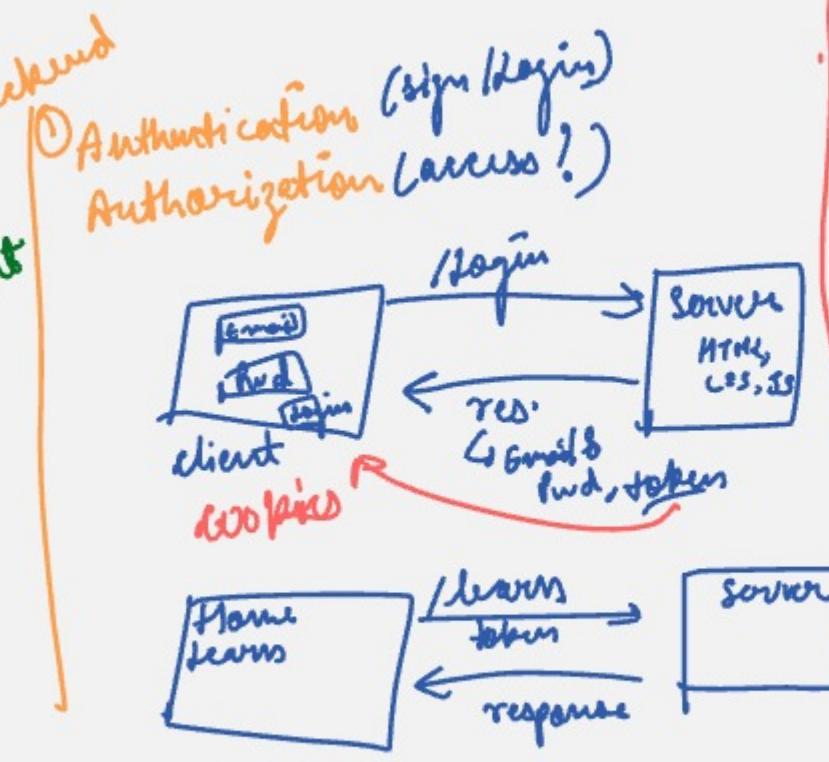 ① Authentication (sign/Login)
Authorization (access?)
/Login
Email
Pwd
Login
client
cookies
Server
HTML,
CSS, JS
res.
↳ Email &
Pwd, token
Home
Learns
/learns
token
response
Server